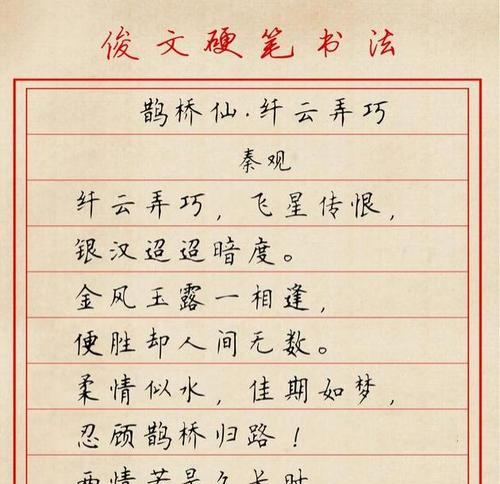 俊文硬笔书法
鹊桥仙·纤云弄巧
秦观
纤云弄巧，飞星传恨，
银汉迢迢暗度。
金风玉露一相逢，
便胜却人间无数。
柔情似水，佳期如梦，
忍顾鹊桥归路！
两情若是久长时